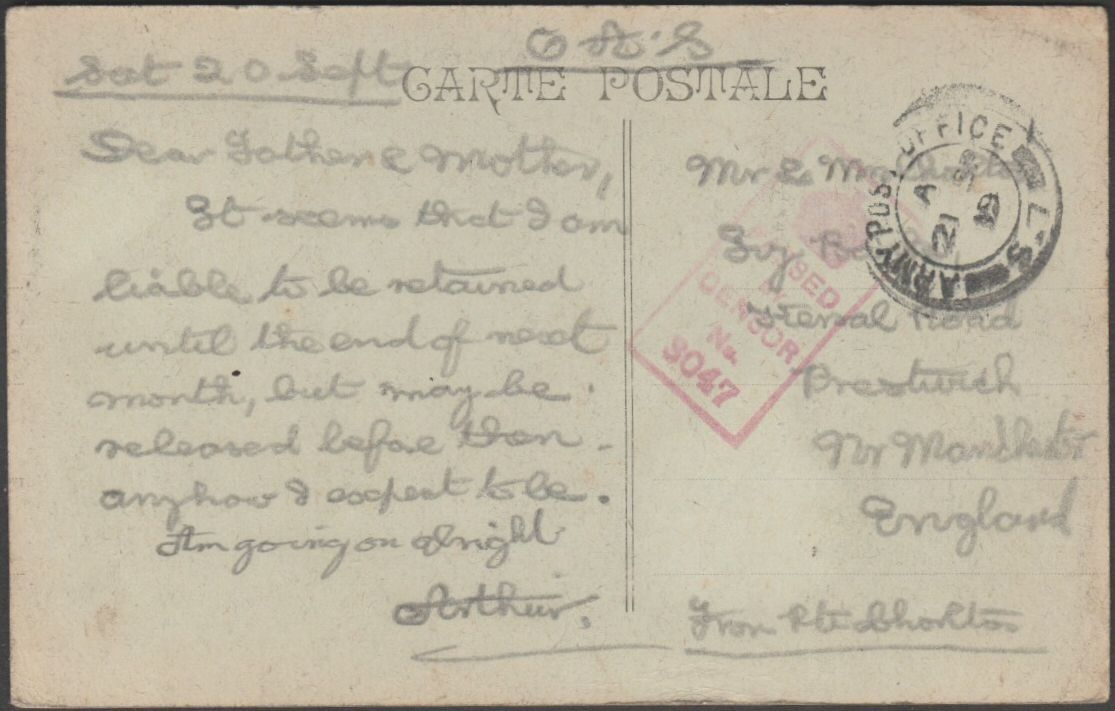 O A S
Sat 20 Sept
CARTE POSTALE
Dear Father & Mother,
It seems that I am
liable to be retained
until the end of next
month, but may be
released before then -
anyhow I expect to be.
Am going on alright
Arthur.
Mr & Mrs Chorlton
Ivy
Road
Prestwich
Nr Manchester
England
From Pte Chorlton
ARMY POST OFFICE
L.S
A
21 SP
19
PASSED
BY
CENSOR
No.
3047